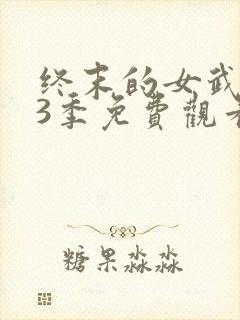 终末的女武
3季免費觀
糖果淼淼